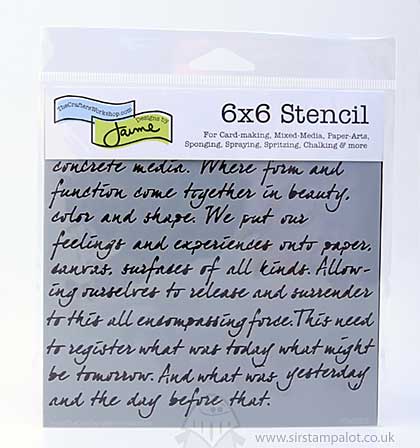 TheCraftersWorkshop.com
Designs by
Jaime
6x6 Stencil
For Card-making, Mixed-Media, Paper-Arts,
Sponging, Spraying, Spritzing, Chalking & more
concrete media. Where form and
function come together in beauty,
color and shape. We put our
feelings and experiences onto paper,
canvas, surfaces of all kinds. Allow-
ing ourselves to release and surrender
to this all encompassing force. This need
to register what was today what might
be tomorrow. And what was yesterday
and the day before that.
www.sirstampalot.co.uk